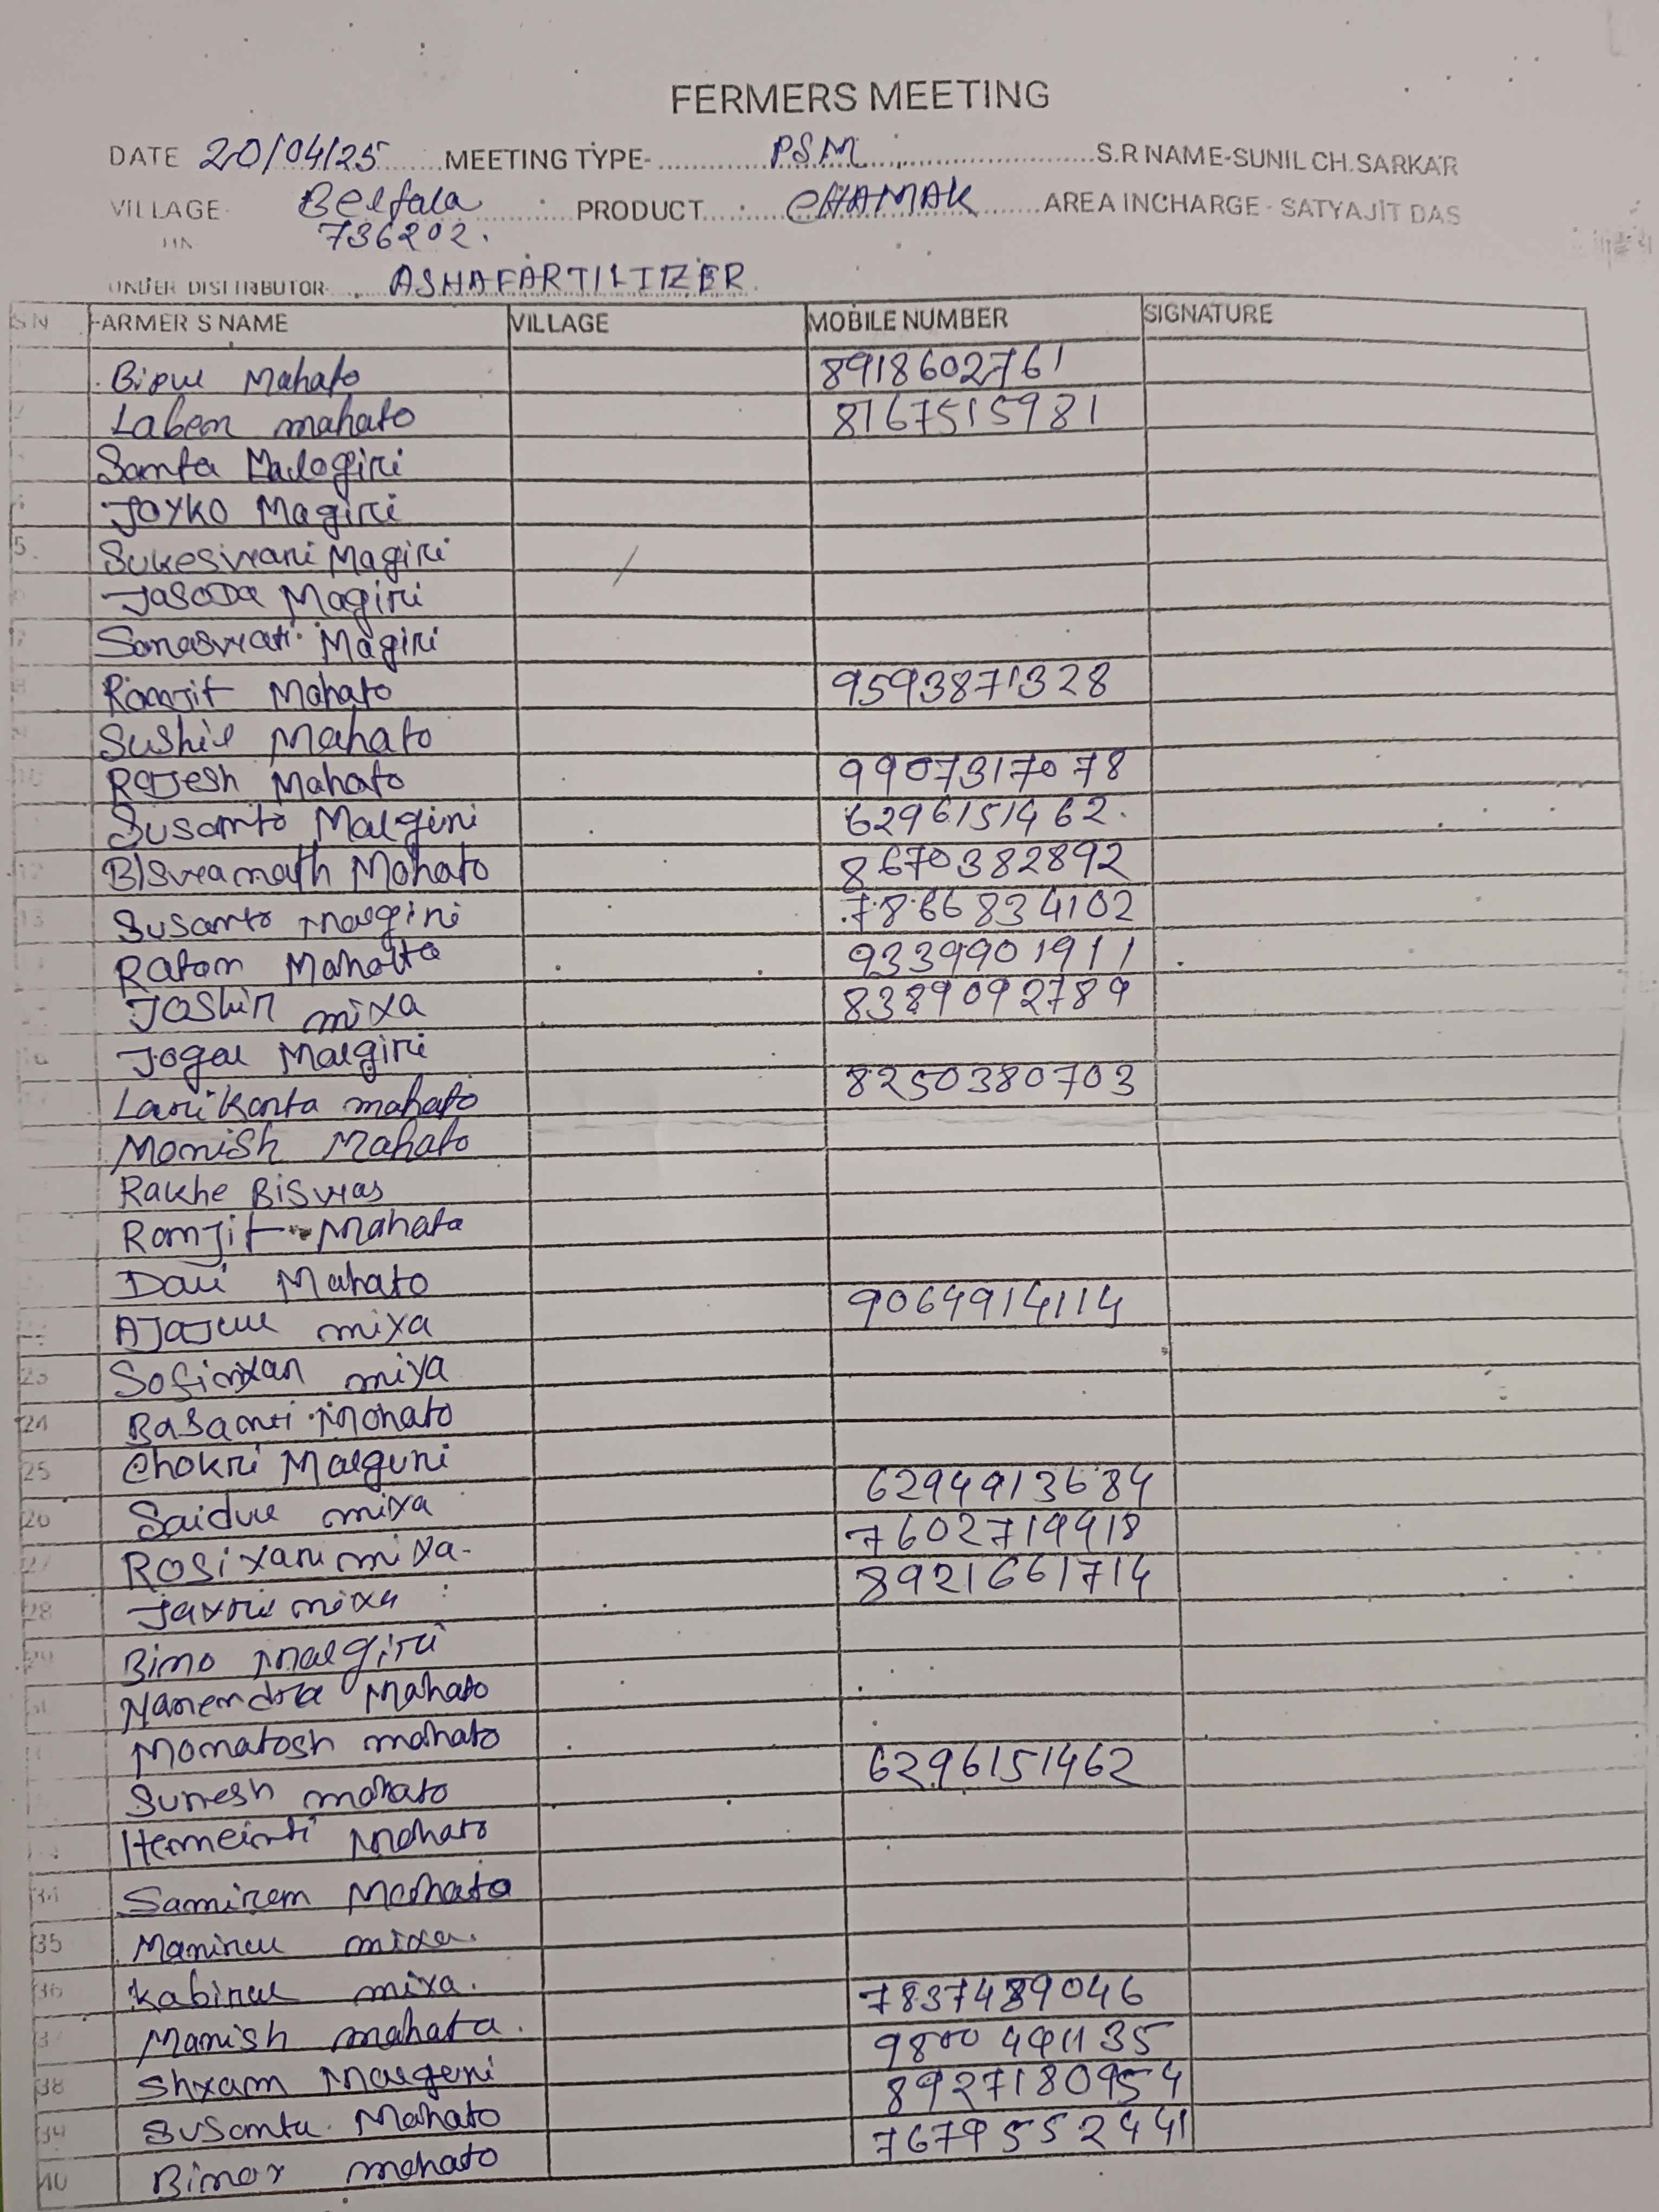 FERMERS MEETING
DATE 20/04/25 MEETING TYPE- PSM S.R NAME-SUNIL CH.SARKAR
VILLAGE- Belfala PRODUCT CHAMAK AREA INCHARGE - SATYAJIT DAS
736202.
UNDER DISTRIBUTOR- ASHAFARTILIZER
SN FARMER S NAME VILLAGE MOBILE NUMBER SIGNATURE
Bipul Mahato 8918602761
2 Laben mahato 8167515981
Santa
JOYKO Magiri
5. Sukeswari Magiri
JasoDa Magiri
Saraswati Magiri
Ranjit Mahato 9593871328
Sushil Mahato
10 Rajesh Mahato 9907317078
Susanto Malgiri 6296151462.
12 Biswanath Mahato 8670382892
13 Susanto Malgiri 7866834102
Ratan Mahato 9339901911
mixa 8389092789
16 Jogal Malgiri
Larikanta mahato 8250380703
Monish Mahato
Rakhe Biswas
Ranjit Mahata
Mahato
AJAJul mixa 9064914114
23 miya
24 Basanti Mohato
25 Chokri Malguri
26 Saidul mixa 6294913684
27 mixa 7602719918
28 mixa 8921661714
29 Bimo Malgiri
Narendra Mahato
Monatosh mahato
Suresh mahato 6296151462
Mahato
34 Mahato
35 Manirul mixa.
36 Kabirul mixa. 7837489046
37 Manish mahata. 9800491135
38 Shxam Malgeri 8927180954
39 Susanta Mahato 7679552441
40 mahato